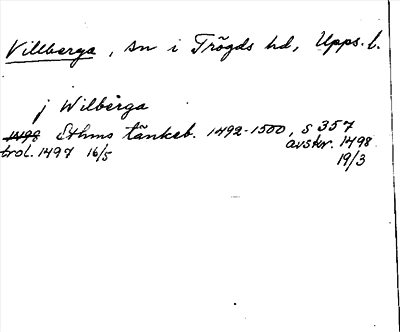 Villberga, sn i Trögds hd, Upps. l.
j Wilberga
1498 Sthms tänkeb. 1492-1500, s 357
trol. 1497 16/5 avskr. 1498 19/3